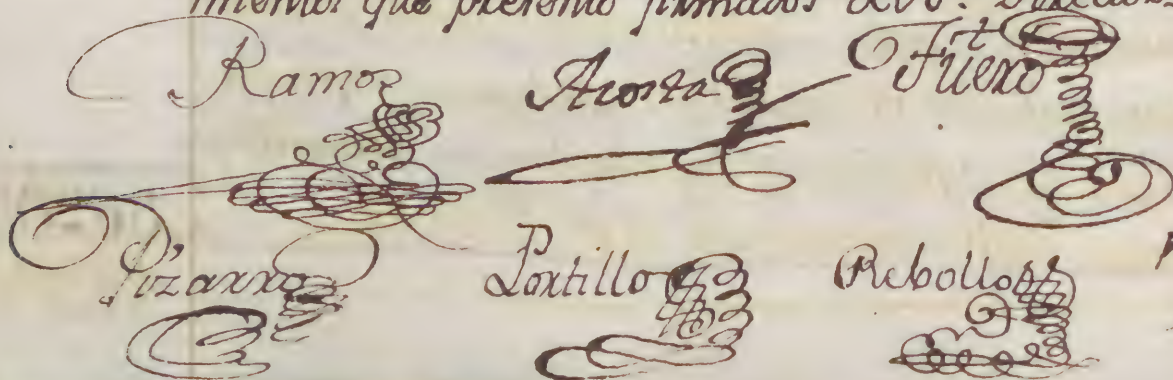 que presento firmados
Ramos Acosta Fuero
Pizarro Portillo Rebollo